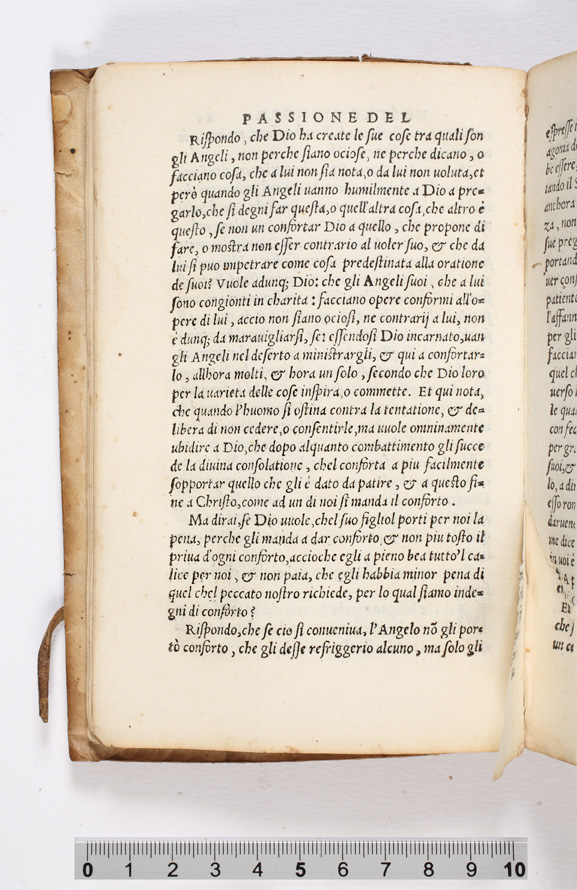 PASSIONE DEL
Riſpondo, che Dio ha create le ſue coſe tra quali ſon
gli Angeli, non perche ſiano ocioſe, ne perche dicano, o
facciano coſa, che a lui non ſia nota, o da lui non voluta, et
però quando gli Angeli uanno humilmente a Dio a pre=
garlo, che ſi degni far queſta, o quell'altra coſa, che altro è
queſto, ſe non un confortar Dio a quello, che propone di
fare, o moſtra non eſſer contrario al uoler ſuo, & che da
lui ſi puo impetrare come coſa predeſtinata alla oratione
de ſuoi? Vuole adunq; Dio: che gli Angeli ſuoi, che a lui
ſono congionti in charita: facciano opere conformi all'o=
pere di lui, accio non ſiano ocioſi, ne contrarij a lui, non
è dunq; da marauigliarſi, ſe: eſſendoſi Dio incarnato, uan
gli Angeli nel deſerto a miniſtrargli, & qui a confortar=
lo, allhora molti, & hora un ſolo, ſecondo che Dio loro
per la uarieta delle coſe inſpira, o commette. Et qui nota,
che quando l'huomo ſi oſtina contra la tentatione, & de=
libera di non cedere, o conſentirle, ma uuole omninamente
ubidire a Dio, che dopo alquanto combattimento gli ſucce
de la diuina conſolatione, chel conforta a piu facilmente
ſopportar quello che gli è dato da patire, & a queſto fi=
ne a Chriſto, come ad un di noi ſi manda il conforto.
Ma dirai, ſe Dio uuole, chel ſuo figliol porti per noi la
pena, perche gli manda a dar conforto, & non piu toſto il
priua d'ogni conforto, accioche egli a pieno bea tutto'l ca=
lice per noi, & non paia, che egli habbia minor pena di
quel chel peccato noſtro richiede, per lo qual ſiamo inde=
gni di conforto?
Riſpondo, che ſe cio ſi conueniua, l'Angelo nõ gli por=
tò conforto, che gli deſſe refriggerio alcuno, ma ſolo gli
eſpreſſe
agonia
be eſſere,
tando il
anchora
za, non
ſue preg
portand
patient
l'affann
per gli
facciar
quel
uerſo
le qua
per gr.
ſuoi, &
eſſo
ne dice
in uoi è
Et
che